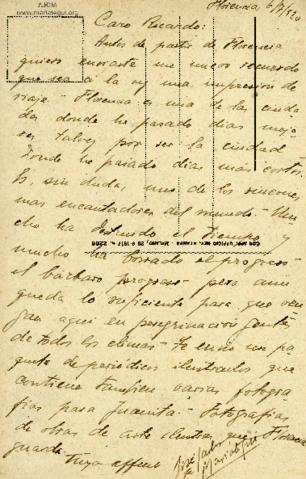 AJCM
www.mariategui.org
Florencia, 6/7/20
Caro Ricardo:
Antes de partir de Florencia
quiero enviarte un nuevo recuerdo
que sea a la vez una impresión de
viaje. Florencia es una de las ciuda-
des donde he pasado días mejo-
res, talvez por ser la ciudad
donde he pasado días más cortos.
Es, sin duda, uno de los rincones
más encantadores del mundo. Mu-
cho ha destruido el tiempo y
mucho ha borrado el progreso
el bárbaro progreso pero aun
queda lo suficiente para que ven-
gan aquí en peregrinación gentes
de todos los climas. Te envío un pa-
quete de periódicos ilustrados que
contiene también varias fotogra-
fías para Juanita. Fotografías
de obras de arte ilustres que Florencia
guarda.
Tuyo affmo
José Carlos
Mariátegui